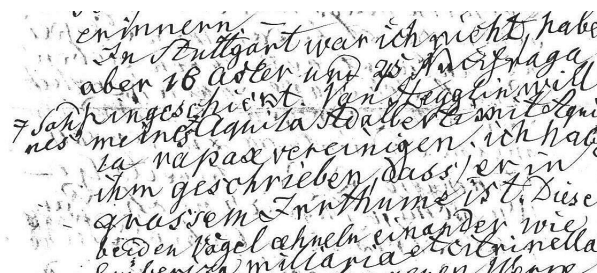 erinnern
In Stuttgart war ich nicht, habe
aber 16 Aster und 25 Nucifraga
hingeschickt Van Stegglin will
7 Sohnes meines Aquila Adalberti mit Aqui
la rapax vereinigen. ich hab
ihm geschrieben, dass er in
grassem Irrthume ist. Diese
beiden Vögel æhneln einander wie
Emberiza miliaria et citrinella